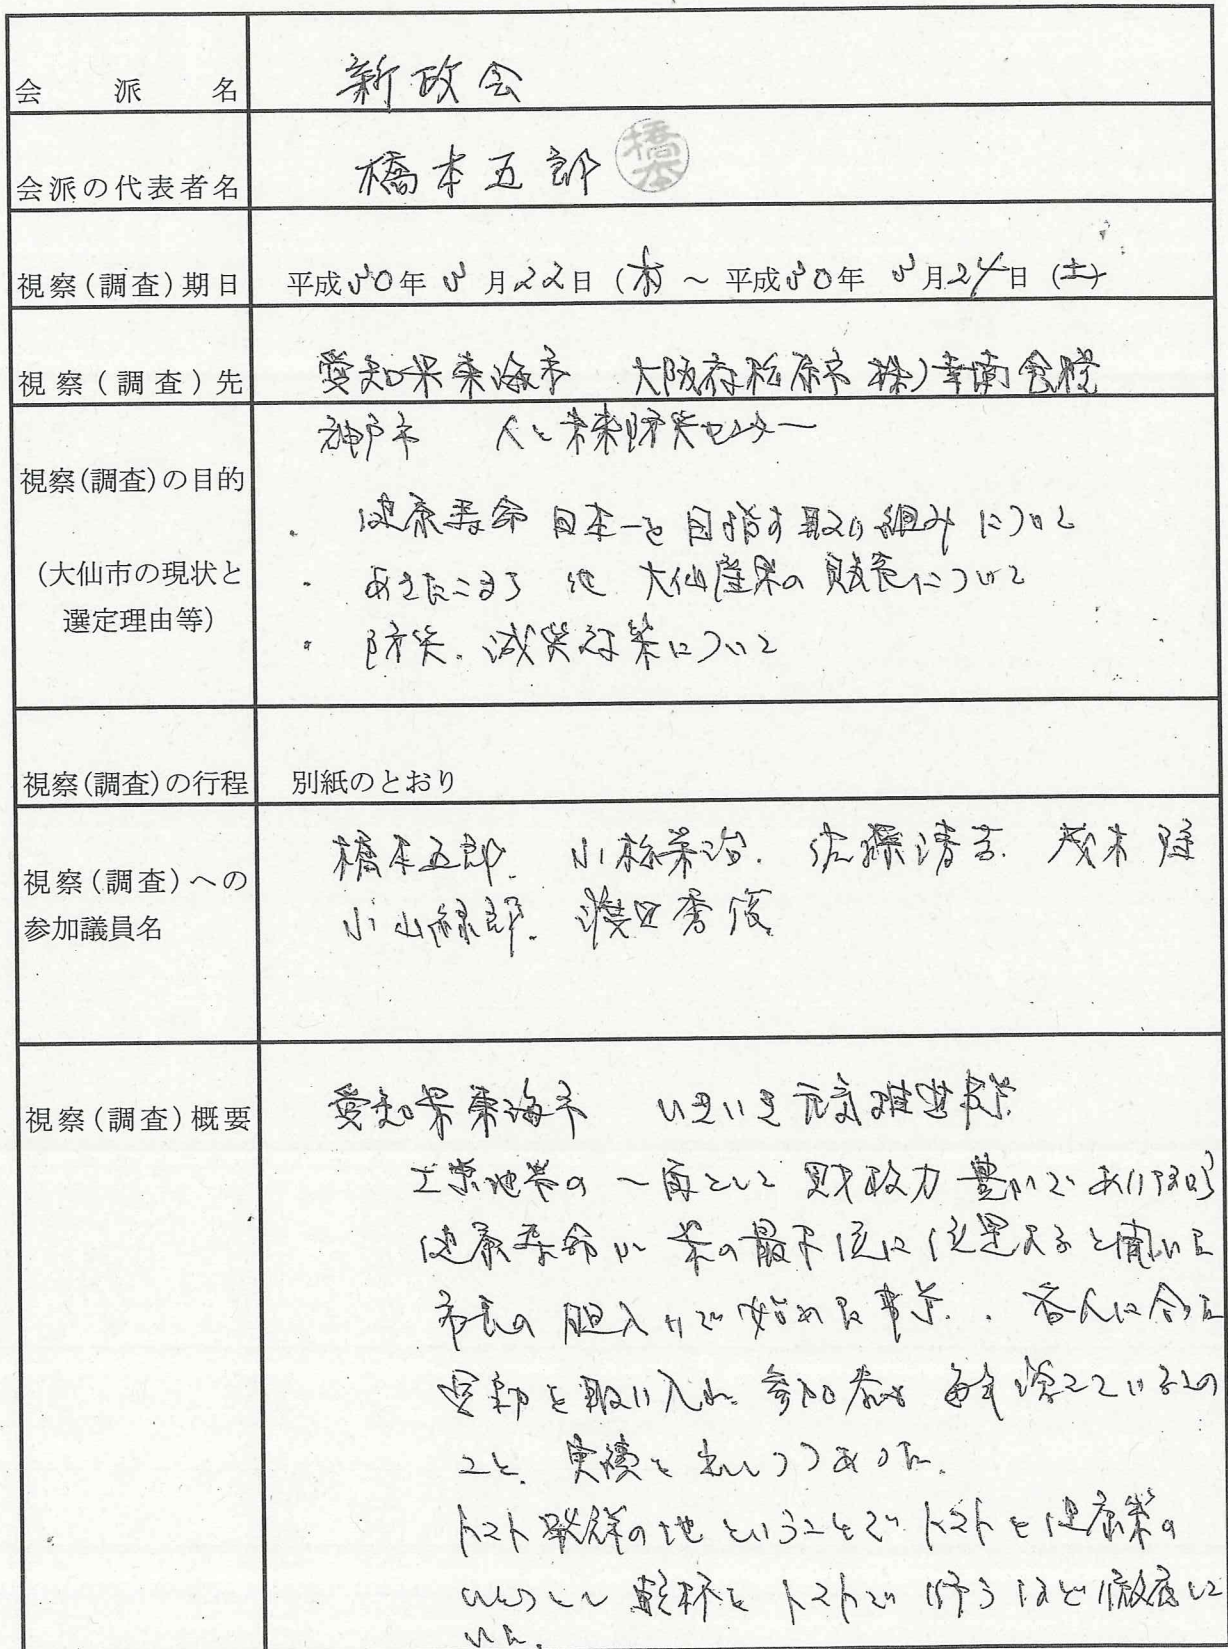 会派名 新政会
会派の代表者名 橋本五郎 橋本
視察(調査)期日 平成30年3月22日(木)～平成30年3月24日(土)
視察(調査)先 愛知県東海市 大阪府松原市 株)幸南食糧
神戸市 人と未来防災センター
視察(調査)の目的
(大仙市の現状と
選定理由等)
・健康寿命日本一を目指す取り組みについて
・あきたこまち他 大仙産米の販売について
・防災.減災対策について
視察(調査)の行程 別紙のとおり
視察(調査)への
参加議員名
橋本五郎. 小松栄治. 佐藤清吉. 茂木隆
小山緑郎. 渡辺秀俊
視察(調査)概要
愛知県東海市 いきいき元気推進事業
工業地帯の一角として財政力豊かで
健康寿命が 県の最下位に位置すると聞いた
市長の肝入りで始めた事業. 各人に合った
運動を取り入れ 参加者も毎年増えているとの
こと. 実績を出しつつあった.
トマト発祥の地ということで トマトを健康策の
ひとつとし 乾杯を トマトで行うほど徹底して
いた.